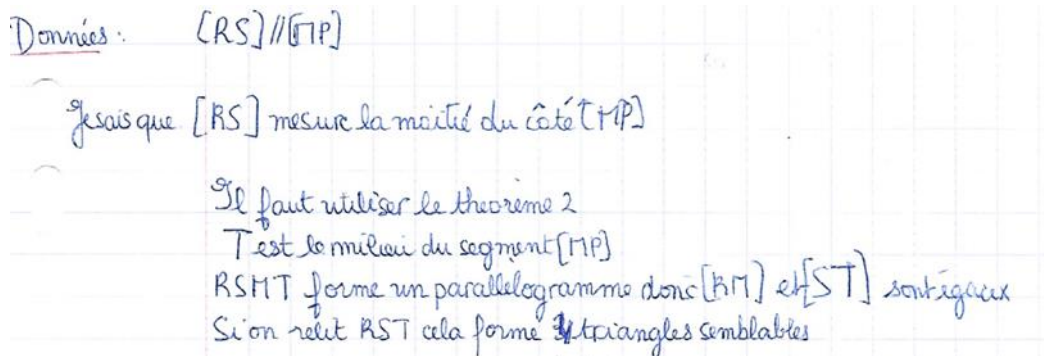 Données : [RS]//[MP]
Je sais que [RS] mesure la moitié du côté [MP]
Il faut utiliser le theorème 2
T est le milieu du segment [MP]
RSMT forme un parallelogramme donc [RM] et [ST] sont égaux
Si on relit RST cela forme 4 triangles semblables